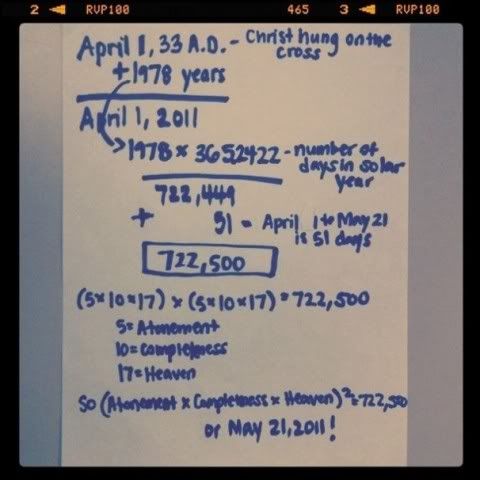 2 ◄ RVP100 465 3 ◄ RVP100
April 1, 33 A.D. - Christ hung on the cross
+1978 years
April 1, 2011
1978 × 365.2422 - number of days in solar year
722,449
+ 51 = April 1 to May 21 is 51 days
722,500
(5×10×17) × (5×10×17) = 722,500
5=Atonement
10=Completness
17=Heaven
So (Atonement × Completness × Heaven)²=722,500
or May 21, 2011!